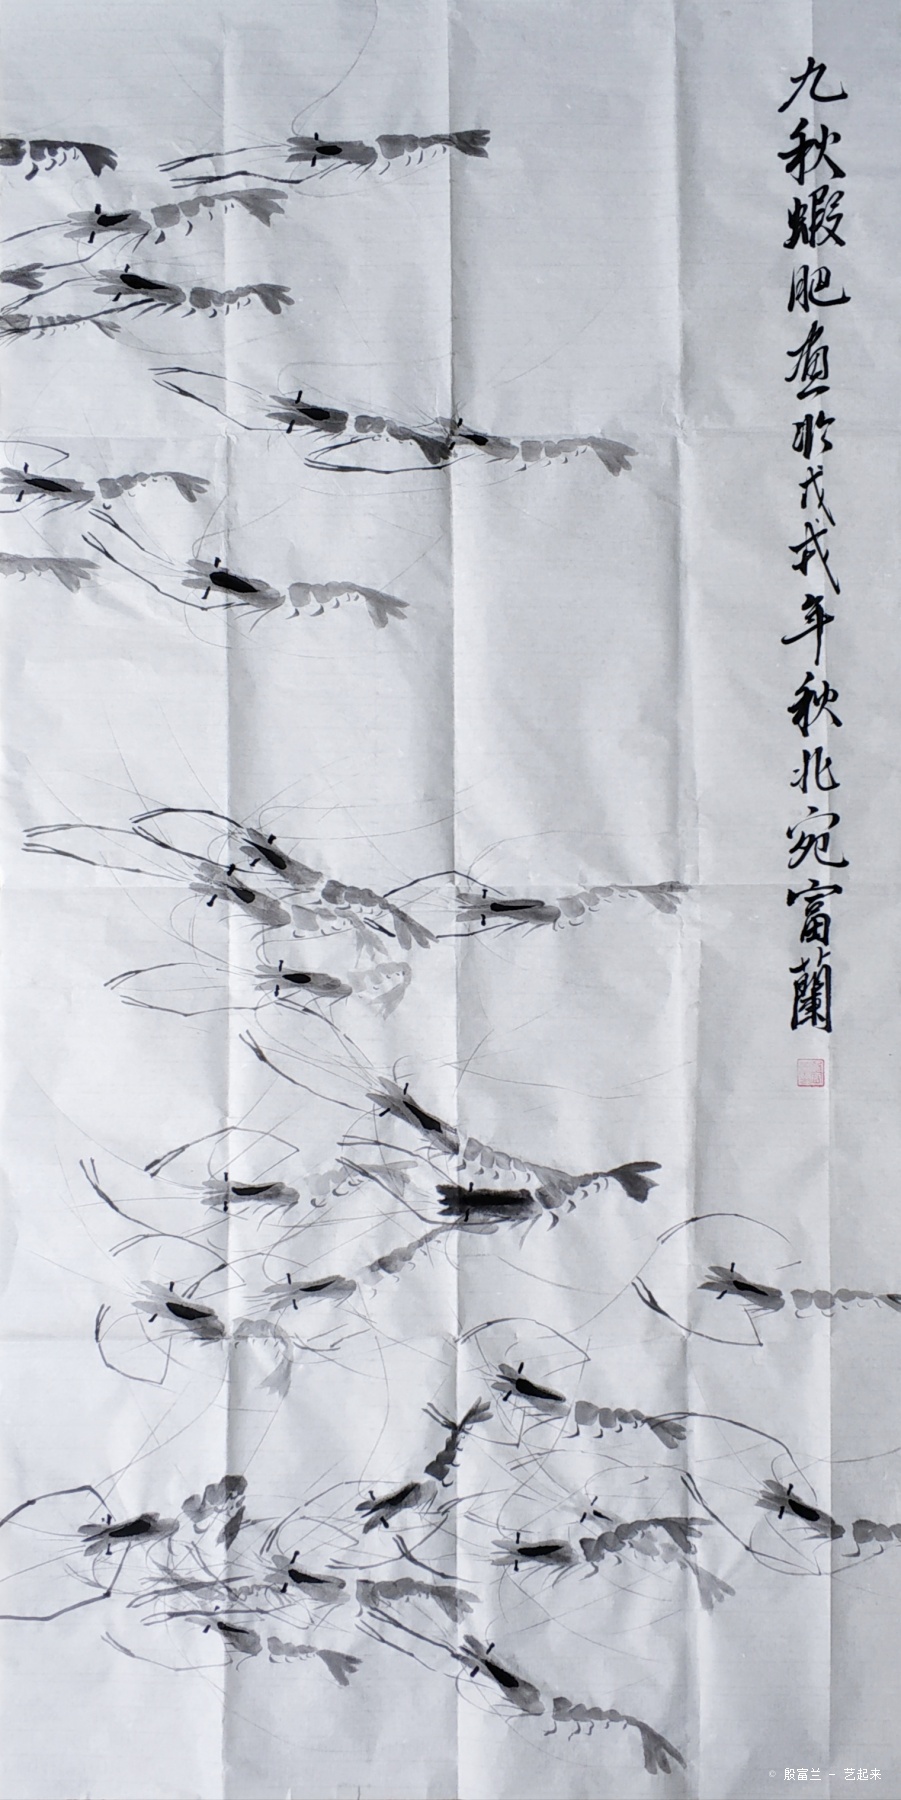 九秋蝦肥画於戊戌年秋北宛富蘭
© 殷富兰 - 艺起来